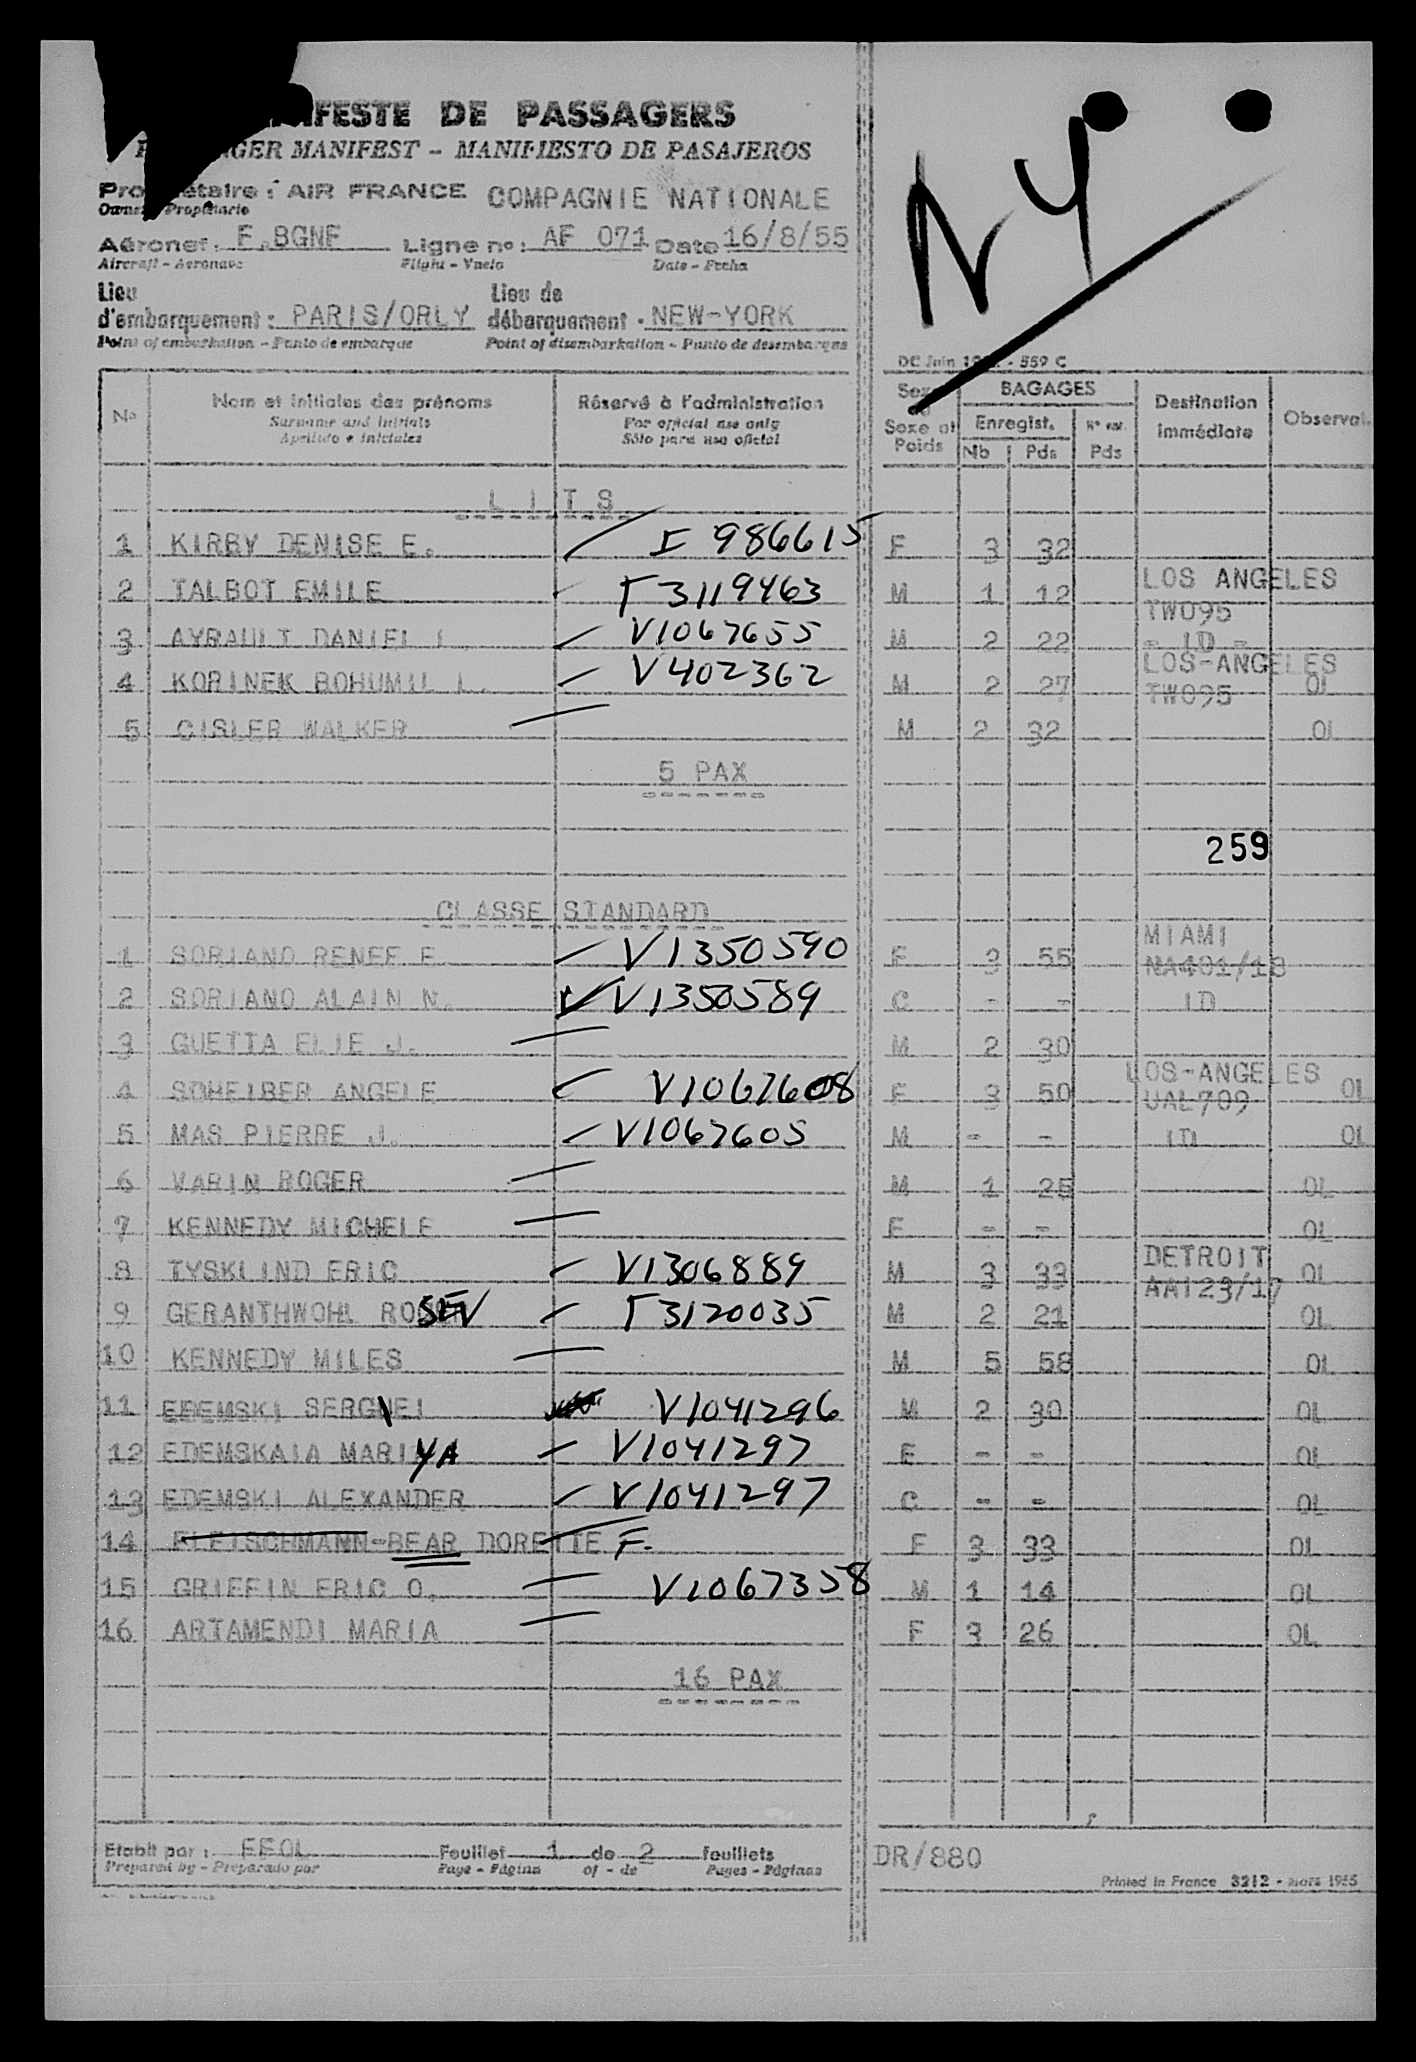 MANIFESTE DE PASSAGERS
PASSENGER MANIFEST – MANIFIESTO DE PASAJEROS
Propriétaire : AIR FRANCE COMPAGNIE NATIONALE
Owner Propietario
Aéronef : F.BGNF Ligne no : AF 071 Date 16/8/55
Aircraft - Aeronave Flight - Vuelo Date - Fecha
Lieu d'embarquement : PARIS/ORLY Lieu de débarquement . NEW-YORK
Point of embarkation - Punto de embarque Point of disembarkation - Punto de desembarque
NY
DC Juin - 559 C
No Nom et initiales des prénoms Réservé à l'administration Sexe Sexe et Poids BAGAGES Destination immédiate Observat.
Surname and initials For official use only Enregist.
Apellido e iniciales Sólo para uso oficial Nb Pds Pds
L I T S
1 KIRBY DENISE E. I 986615 F 3 32
2 TALBOT EMILE T 3119463 M 1 12 LOS ANGELES TW095
3 AYRAULT DANIEL L. V1067655 M 2 22 - ID -
4 KORINEK BOHUMIL L. V402362 M 2 27 LOS-ANGELES TW095 OL
5 CISLER WALKER M 2 32 OL
5 PAX
259
CLASSE STANDARD
1 SORIANO RENEE E V1350590 F 3 55 MIAMI NA401/18
2 SORIANO ALAIN N. V1350589 C - - ID
3 GUETTA ELIE J. M 2 30
4 SCHEIBER ANGELE V1067608 F 3 50 LOS-ANGELES UAL709 OL
5 MAS PIERRE J. V1067605 M - - ID OL
6 VARIN ROGER M 1 25 OL
7 KENNEDY MICHELE F - - OL
8 TYSKLIND ERIC V1306889 M 3 33 DETROIT AA123/17 OL
9 GERANTHWOHL T 3120035 M 2 21 OL
10 KENNEDY MILES M 5 58 OL
11 EDEMSKI SERGUEI V1041296 M 2 30 OL
12 EDEMSKAIA MARIYA V1041297 F - - OL
13 EDEMSKI ALEXANDER V1041297 C - - OL
14 FLEISCHMANN-BEAR DORETTE F. F 3 33 OL
15 GRIFFIN ERIC O. V1067358 M 1 14 OL
16 ARTAMENDI MARIA F 3 26 OL
16 PAX
Etabli par : FEOL Feuillet 1 de 2 feuillets DR/880
Prepared by - Preparado por Page - Página of - de Pages - Páginas
Printed in France 3212 - mars 1955